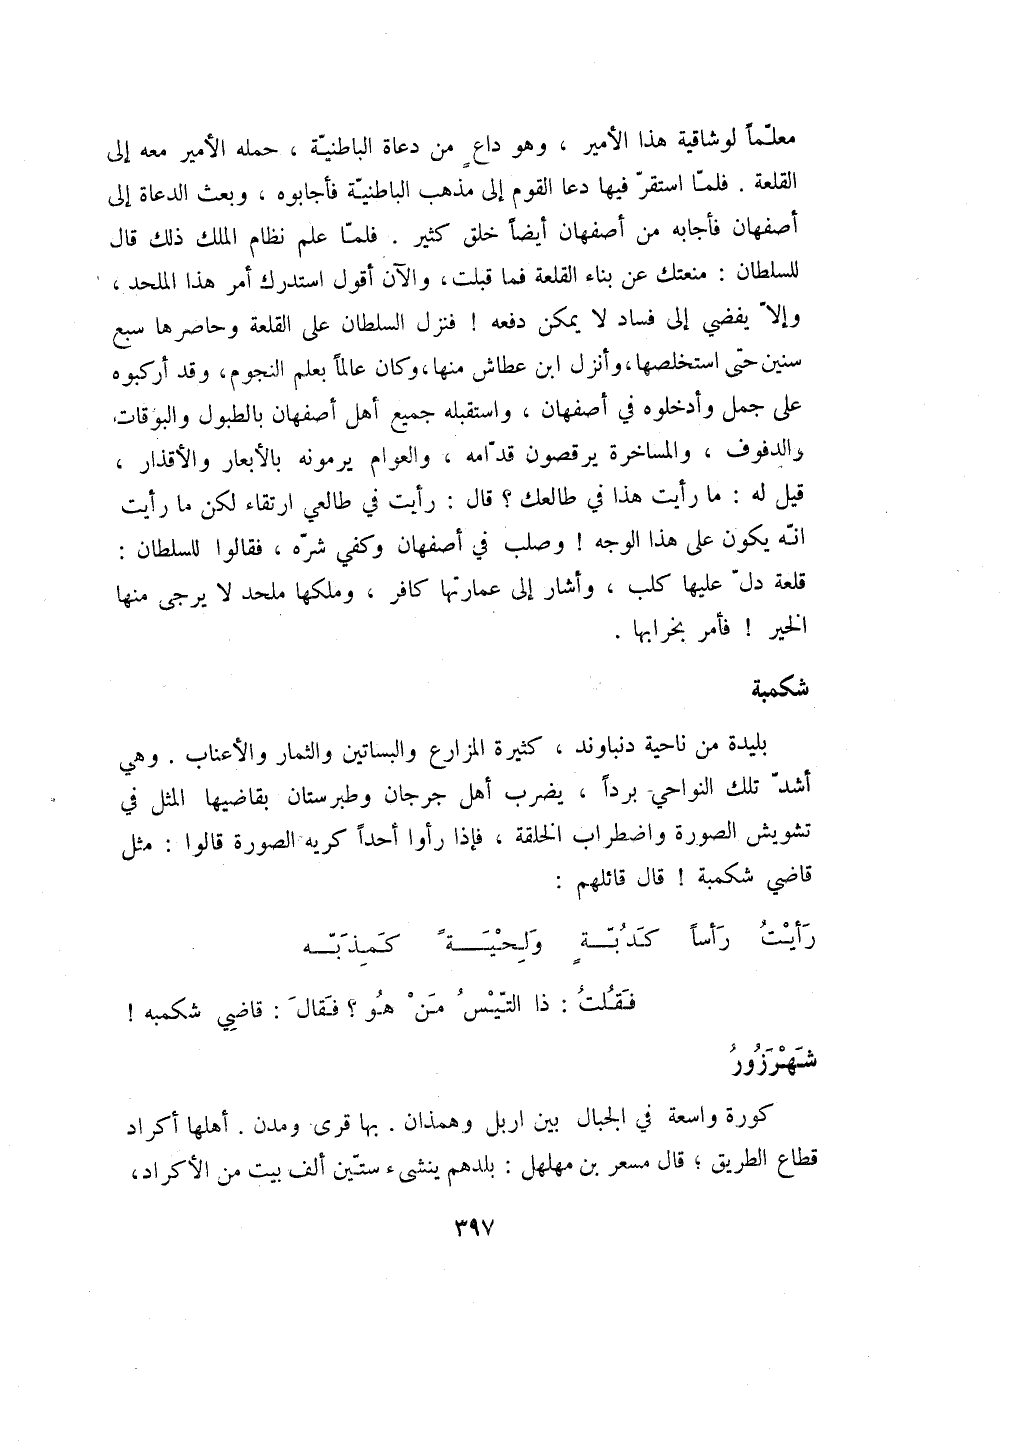 معلّماً لوشاقية هذا الأمير ، وهو داعٍ من دعاة الباطنيّة ، حمله الأمير معه إلى
القلعة . فلمّا استقرّ فيها دعا القوم إلى مذهب الباطنيّة فأجابوه ، وبعث الدعاة إلى
أصفهان فأجابه من أصفهان أيضاً خلق كثير . فلمّا علم نظام الملك ذلك قال
للسلطان : منعتك عن بناء القلعة فما قبلت، والآن أقول استدرك أمر هذا الملحد ،
وإلاّ يفضي إلى فساد لا يمكن دفعه ! فنزل السلطان على القلعة وحاصرها سبع
سنين حتّى استخلصها، وأنزل ابن عطاش منها، وكان عالماً بعلم النجوم، وقد أركبوه
على جمل وأدخلوه في أصفهان ، واستقبله جميع أهل أصفهان بالطبول والبوقات
والدفوف ، والمساخرة يرقصون قدّامه ، والعوام يرمونه بالأبعار والأقذار ،
قيل له : ما رأيت هذا في طالعك ؟ قال : رأيت في طالعي ارتقاء لكن ما رأيت
انّه يكون على هذا الوجه ! وصلب في أصفهان وكفي شرّه ، فقالوا للسلطان :
قلعة دلّ عليها كلب ، وأشار إلى عمارتها كافر ، وملكها ملحد لا يرجى منها
الخير ! فأمر بخرابها .
شكمبة
بليدة من ناحية دنباوند ، كثيرة المزارع والبساتين والثمار والأعناب . وهي
أشدّ تلك النواحي برداً ، يضرب أهل جرجان وطبرستان بقاضيها المثل في
تشويش الصورة واضطراب الخلقة ، فإذا رأوا أحداً كريه الصورة قالوا : مثل
قاضي شكمبة ! قال قائلهم :
رَأَيْتُ رَأساً كَدُبّةٍ وَلِحْيَةً كَمِذَبّه
فَقُلتُ : ذا التّيْسُ مَنْ هُو ؟ فَقالَ : قاضِي شكمبه !
شَهْرَزُورُ
كورة واسعة في الجبال بين اربل وهمذان . بها قرى ومدن . أهلها أكراد
قطاع الطريق ؛ قال مسعر بن مهلهل : بلدهم ينشىء ستّين ألف بيت من الأكراد،
٣٩٧